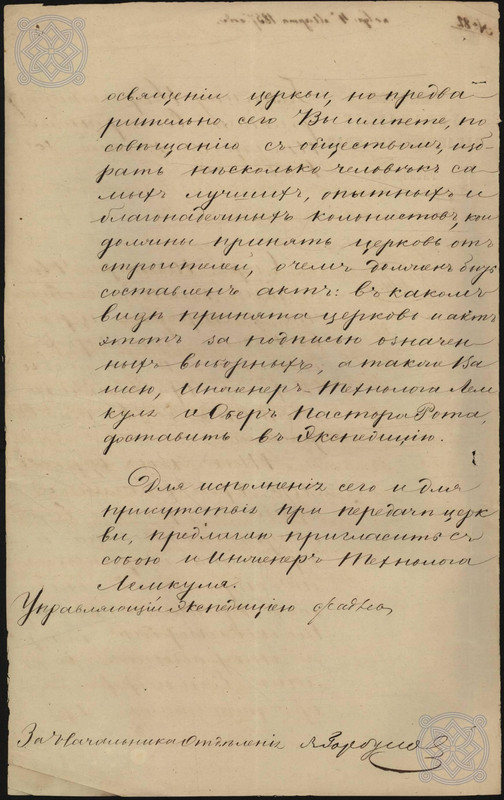 № 82
освященіи церкви, но предва
рительно сего Вы имѣете, по
совѣщанію съ обществомъ, изб
рать нѣсколько человѣкъ са
мыхъ лучшихъ, опытныхъ и
благонадежныхъ колонистовъ, кои
должны принять церковь отъ
строителей, о чемъ долженъ быть
составленъ актъ: въ какомъ
видѣ принята церковь и актъ
этотъ за подписью означен
ныхъ выборныхъ, а также Ва
шею, Инженеръ-Технолога Лем
куля и Оберъ Пастора Рота,
доставить въ Экспедицію.
Для исполненія сего и для
присутствія при передачѣ церк
ви, предлагаю пригласить съ
собою и Инженеръ-Технолога
Лемкуля.
Управляющій Экспедиціею
За Начальника Отдѣленія